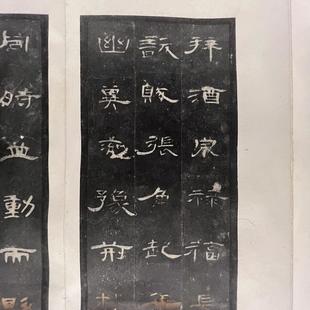 拜酒泉祿福長
訞賊張角起兵
幽冀兗豫荊楊
同時並動而縣